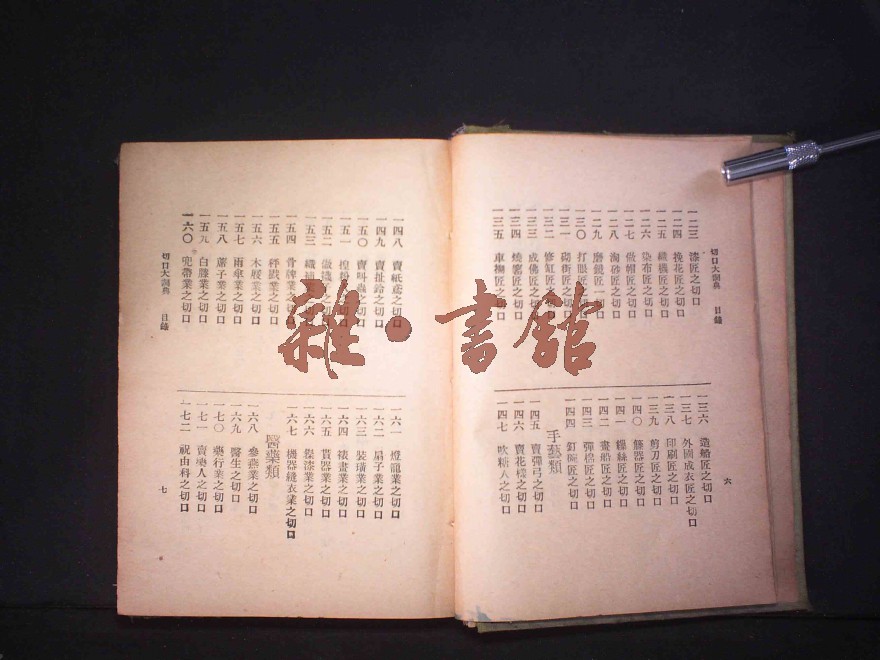 切口大詞典 目錄
一二三 漆匠之切口
一二四 挽花匠之切口
一二五 織機匠之切口
一二六 染布匠之切口
一二七 做帽匠之切口
一二八 淘砂匠之切口
一二九 磨鏡匠之切口
一三〇 打眼匠之切口
一三一 砌街匠之切口
一三二 修缸匠之切口
一三三 成佛匠之切口
一三四 燒窰匠之切口
一三五 車捆匠之切口
一三六 造船匠之切口
一三七 外國成衣匠之切口
一三八 印刷匠之切口
一三九 剪刀匠之切口
一四〇 籐器匠之切口
一四一 絲匠之切口
一四二 畫船匠之切口
一四三 彈棉匠之切口
一四四 釘碗匠之切口
手藝類
一四五 賣彈弓之切口
一四六 賣花樣之切口
一四七 吹糖人之切口
六
一四八 賣紙鳶之切口
一四九 賣扯鈴之切口
一五〇 賣叫蟲之切口
一五一 之切口
一五二 之切口
一五三 織 之切口
一五四 骨牌業之切口
一五五 秤戥業之切口
一五六 木屐業之切口
一五七 雨傘業之切口
一五八 蓆子業之切口
一五九 白藤業之切口
一六〇 兜帶業之切口
切口大詞典 目錄
一六一 燈籠業之切口
一六二 扇子業之切口
一六三 裝璜業之切口
一六四 裱畫業之切口
一六五 賃器業之切口
一六六 髹漆業之切口
一六七 機器縫衣業之切口
醫藥類
一六八 參燕業之切口
一六九 醫生之切口
一七〇 藥行業之切口
一七一 賣藥人之切口
一七二 祝由科之切口
七
雜·書館